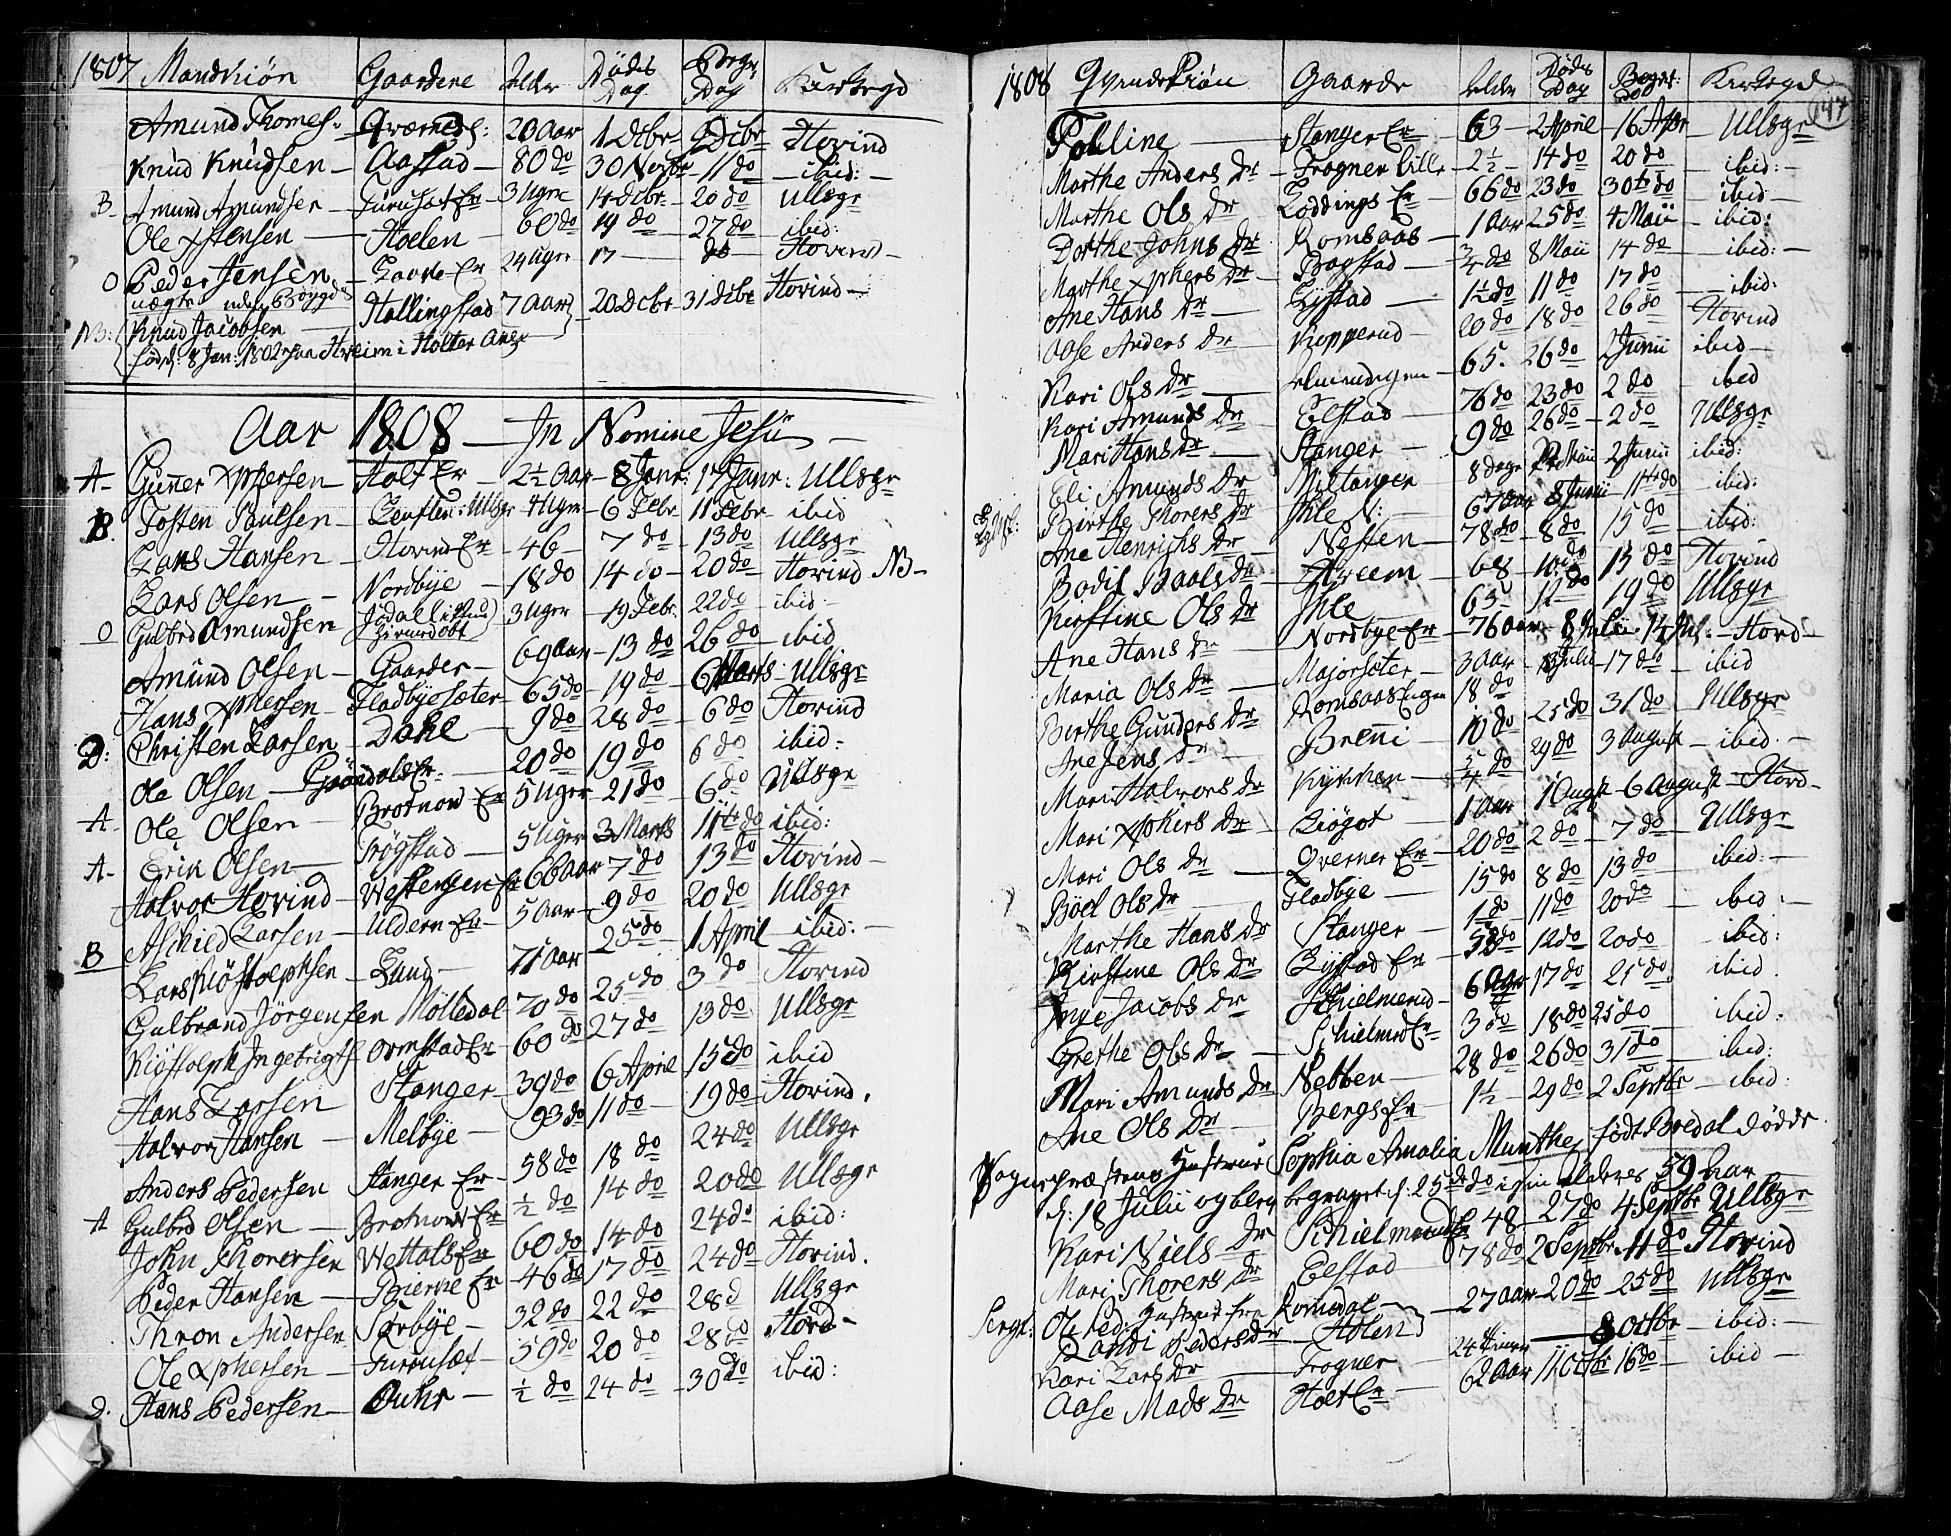 1807 Mandkiön Gaardene Alder Döds Dag Begr. Dag Kirkegd
Amund Thomes: Qværnes: 20 Aar 1 Dcbr 9 Dcbr Hovind
Knud Knudsen Aastad 80 do 30 Novbr 11 do ibid:
B Amund Amundsen Furuset Er 3 Uger 14 Dcbr 20 do Ullsgr
Ole Xstensen Hoelen 60 do 19 do 27 do ibid:
O Peder Jensen Er 24 Uger 17 do Hovind
NB: Knud Jacobsen Hallingstad 7 Aar 20 Dcbr 31 Dcbr Hovind
född: 8 Jan: 1802 paa i Holter
Aar 1808 In Nomine Jesü
A Guner Xphersen Holt Er 2½ Aar 8 Janr: 17 Janr: Ullsgr
B. Tosten Paulsen Ullsgr 4 Ugr 6 Febr 11 Febr ibid
Lars Hansen Hovind Er 46 7 do 13 do Ullsgr
Lars Olsen Nordbÿe 18 do 14 do 20 do Hovind NB
O Gulbrd Amundsen Jödal 3 Uger 19 Febr. 22 do ibid
Amund Olsen Gaarder 69 Aar 13 do 26 do ibid
Hans Xphersen Fladbÿe sæter 65 do 19 do 6 Marts Ullsgr
D: Christen Larsen Dahl 9 do 28 do 6 do Hovind
Ole Olsen Gröndals Er 20 do 19 do 6 do ibid:
A Ole Olsen Brotnow Er 5 Uger 21 do 6 do Ullsgr
A Erik Olsen Trögstad 5 Uger 3 Marts 11te do ibid:
Halvor Hovind Westengen Er 66 Aar 7 do 13 do Hovind
Larsen Uldern Er 5 Aar 9 do 20 do Ullsgr
B Lars Kiöstolphsen Lund 71 Aar 25 do 1 April ibid:
Gulbrand Jörgensen Mölledal 70 do 25 do 3 do Hovind
Kiöstolph Ingebrigts Ormstad Er 60 do 27 do 13 do Ullsgr
Hans Larsen Stanger 39 do 6 April 15 do ibid
Halvor Hansen Melbÿe 93 do 11 do 19 do Hovind.
Anders Pedersen Stanger Er 58 do 18 do 24 do Ullsgr
A Gulbrd Olsen Brotnow Er ½ do 14 do 20 do Ullsgr
John Thoresen Wettals Er 60 do 14 do 24 do ibid:
Peder Hansen Bierke Er 46 do 17 do 24 do Hovind.
Thron Andersen Torbÿe 32 do 22 do 28 d Ullsgr
Ole Xphersen Furuset 59 do 20 do 28 do Hovd
D. Hans Pedersen ½ do 24 do 30 do ibid:
1808 Qvindekiön Gaarde Alder Döds Dag Begr: Dag Kirkegd
147
Polline Stanger Er 63 2 April 16 Apr Ullsgr
Marthe Anders Dr Frogner 2½ 14 do 20 do ibid:
Marthe Ols Dr Loddings Er 66 do 23 do 30te do ibid
Dorthe Johns Dr Romsaas 1 Aar 25 do 4 Maii ibid:
Marthe Xphers Dr Dragstad ¾ do 8 Maii 14 do ibid:
Ane Hans Dr Lÿstad 1½ do 11 do 17 do ibid:
Aase Anders Dr Kopperud 20 do 18 do 26 do Hovind
Kari Ols Dr Almendigen 65. 26 do Junii ibid
Kari Amunds Dr Elstad 76 do 23 do 2 do ibid
Mari Hans Dr Stanger 9 do 26 do 2 do Ullsgr
Eli Amunds Dr Miltanger 8 dage Maii 2 Junii ibid:
Birthe Thorers Dr Ihle N: 67 Aar 8 Junii 11te do ibid:
Ane Henrichs Dr Nesten 78 do 8 do 15 do ibid:
Bodil Dr Hreem 68 10 do 13 do Hovind
Kirstine Ols Dr Ihle 63 12 do 19 do Ullsgr
Ane Hans Dr Nordbÿe Er 76 Aar 8 Julii 14 Jul: Hovd
Maria Ols Dr Majorsæter 3 Aar Julii 17 do ibid
Birthe Gunders Dr Romsaas Eigen 18 do 25 do 31 do Ullsgr
Ane Jens Dr Brenni 10 do 29 do 3 August ibid.
Mari Halvors Dr Kÿkken do 1 Augst 6 August Hovd
Mari Xphers Dr 1 Aar 2 do 7 do Ullsgr
Mari Ols Dr Qverner Er 20 do 8 do 13 do ibid:
Böel Ols Dr Fladbÿe 15 do 11 do 20 do ibid:
Marthe Hans Dr Stanger do 12 do 20 do ibid:
Kirstine Ols Dr Lÿstad Er do 17 do 25 do ibid.
Inge Jacobs Dr Schielmerud 18 do 25 do ibid:
Grethe Ols Dr Schielmrd Er 3 do 26 do 31 do ibid:
Mari Amunds Dr Nebben 28 do 29 do 2 Septbr ibid:
Ane Ols Dr Bergs Er 1½
Sognepræstens Hustrue Sophia Amalia Munthe födt Bredal döde
d: 18 Julii og blev begravet d: 25de do i sin alders 59 Aar
Kari Niels Dr Schielmerud Er 48 27 do 4 Septbr Ullsgr
Mari Thorers Dr Elstad 78 do 2 Septbr 11 do Hovind
Sergt: Ole Ped: Hustrue fra Romedal 27 Aar 20 do 25 do Ullsgr
Randi Peders Dr Holen
Kari Lars Dr Frogner 24 timer 8 Octbr ibid:
Aase Mads Dr Holt Er 62 Aar 11 Octbr 16 do ibid